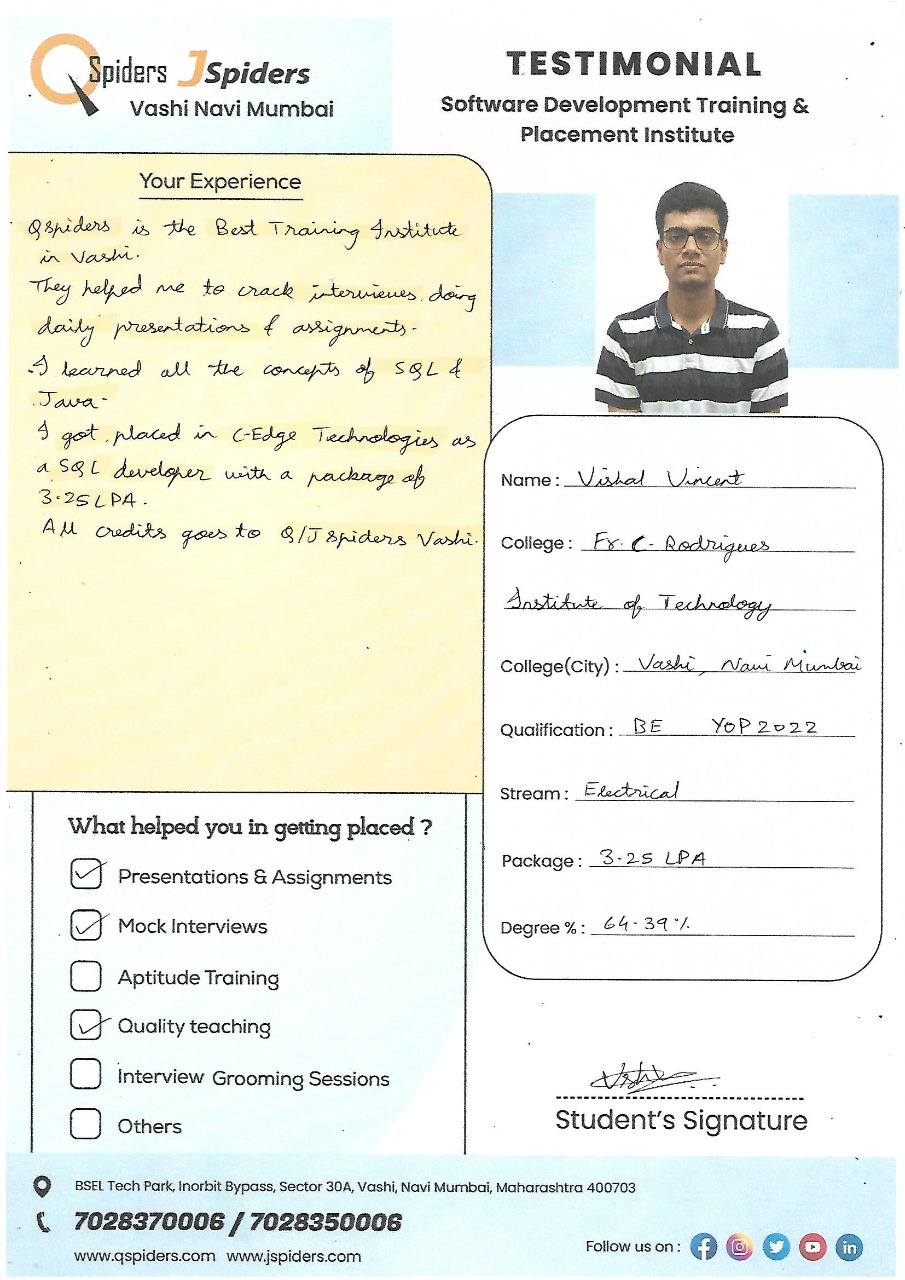 QSpiders JSpiders
Vashi Navi Mumbai
TESTIMONIAL
Software Development Training &
Placement Institute
Your Experience
Qspiders is the Best Training Institute
in Vashi.
They helped me to crack interviews, doing
daily presentations & assignments.
I learned all the concepts of SQL &
Java.
I got placed in C-Edge Technologies as
a SQL developer with a package of
3.25 LPA.
All credits goes to Q/J Spiders Vashi.
Name : Vishal Vincent
College : Fr. C. Rodrigues
Institute of Technology
College(City) : Vashi, Navi Mumbai
Qualification : BE YOP 2022
Stream : Electrical
Package : 3.25 LPA
Degree % : 64.39%
What helped you in getting placed ?
Presentations & Assignments
Mock Interviews
Aptitude Training
Quality teaching
Interview Grooming Sessions
Others
Student's Signature
BSEL Tech Park, Inorbit Bypass, Sector 30A, Vashi, Navi Mumbai, Maharashtra 400703
7028370006 / 7028350006
www.qspiders.com www.jspiders.com
Follow us on :